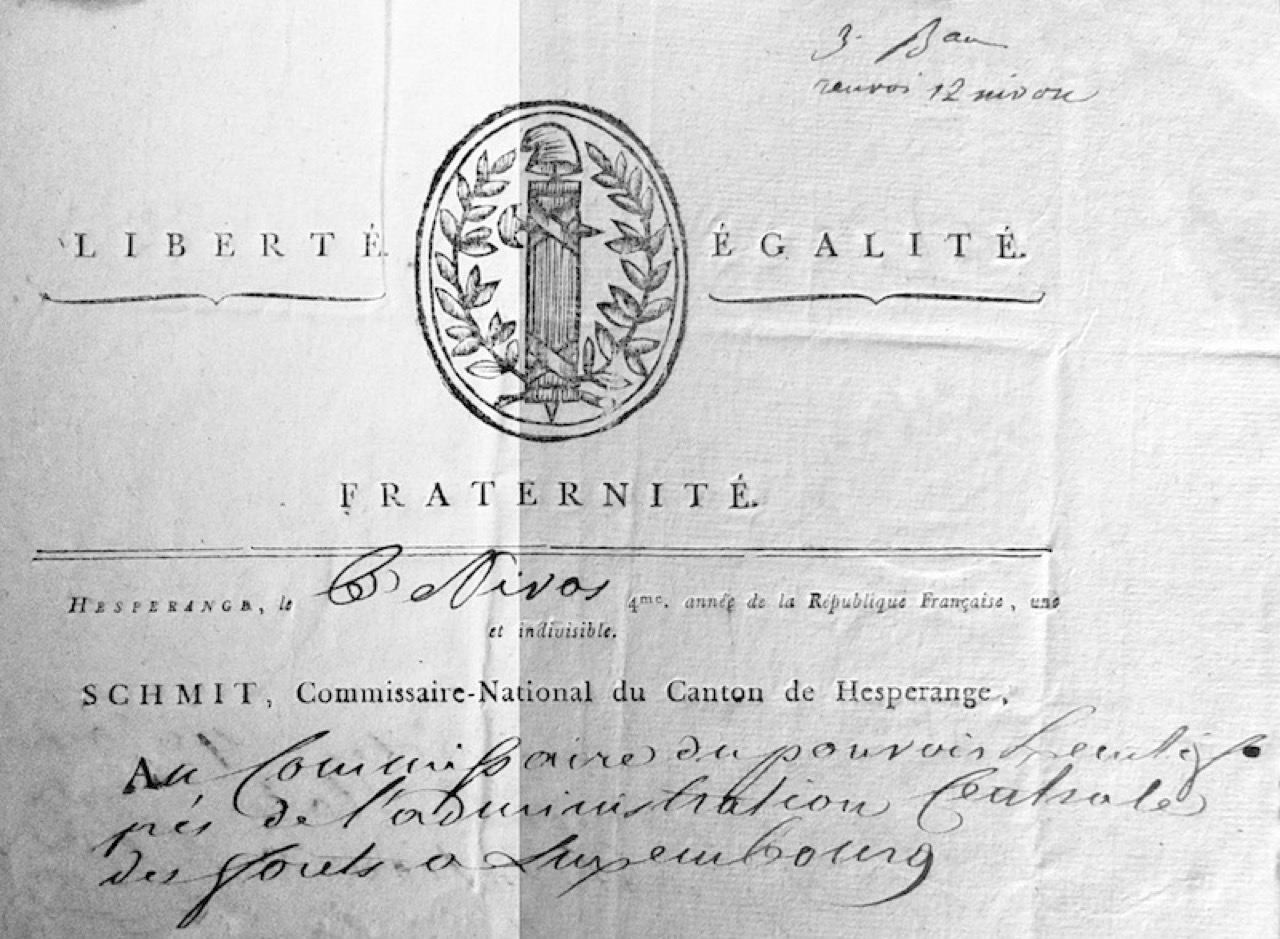 3. Bau
renvoi 12 nivose
LIBERTÉ. ÉGALITÉ.
FRATERNITÉ.
HESPERANGE, le Nivos 4me. année de la République Française, une
et indivisible.
SCHMIT, Commissaire-National du Canton de Hesperange,
Au Commissaire du pouvoir
prés de l'administration Centrale
des forets a Luxembourg